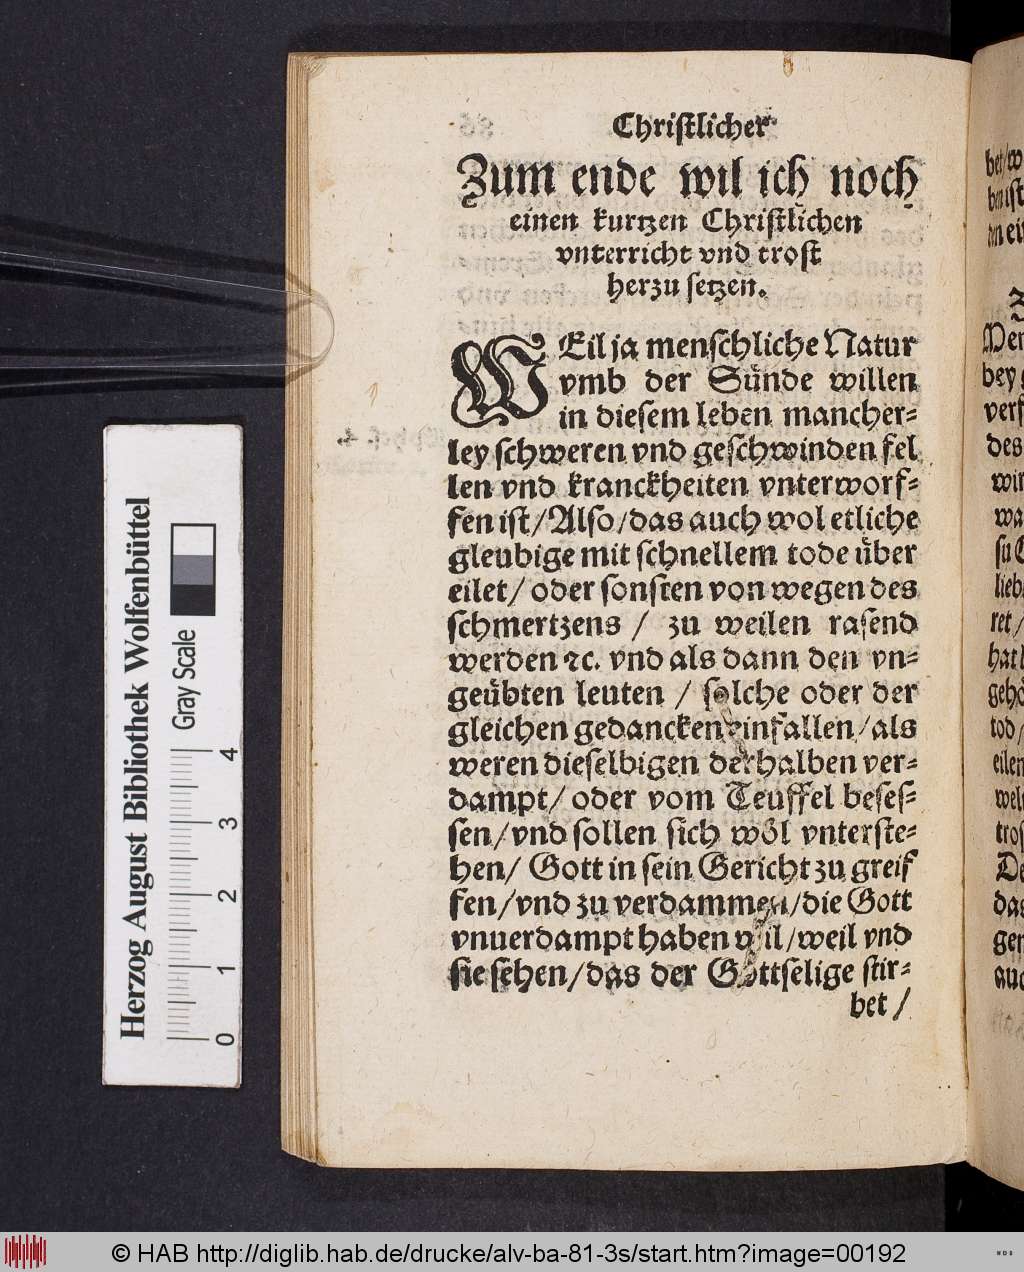 Christlicher
Zum ende wil ich noch
einen kurtzen Christlichen
vnterricht vnd trost
herzu setzen.
WEil ja menschliche Natur
vmb der Sünde willen
in diesem leben mancher-
ley schweren vnd geschwinden fel
len vnd kranckheiten vnterworf-
fen ist/Also/das auch wol etliche
gleubige mit schnellem tode über
eilet/ oder sonsten von wegen des
schmertzens / zu weilen rasend
werden ꝛc. vnd als dann den vn-
geübten leuten / solche oder der
gleichen gedancken einfallen/als
weren dieselbigen derhalben ver-
dampt/ oder vom Teuffel beses-
sen/vnd sollen sich wöl vnterste-
hen/ Gott in sein Gericht zu greif
fen/vnd zu verdammen/die Gott
vnuerdampt haben wil/weil vnd
sie sehen/das der Gottselige stir-
bet /
Herzog August Bibliothek Wolfenbüttel
Gray Scale
0 1 2 3 4
© HAB http://diglib.hab.de/drucke/alv-ba-81-3s/start.htm?image=00192